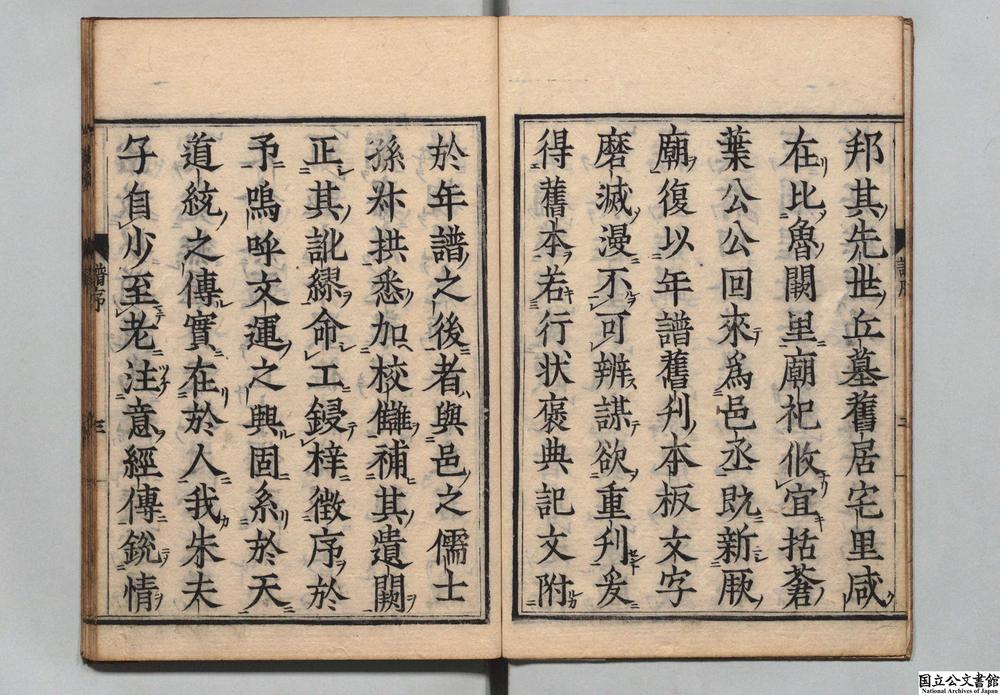 邦其先世丘墓舊居宅里咸
在比魯闕里廟祀攸宜括蒼
葉公公回來爲邑丞既新厥
廟復以年譜舊刋本板文字
磨滅漫不可辨謀欲重刋爰
得舊本若行状褒典記文附
於年譜之後者與邑之儒士
孫叔拱悉加校讎補其遺闕
正其訛繆命工鋟梓徵序於
予嗚呼文運之興固系於天
道統之傳實在於人我朱夫
子自少至老注意經傳銳情
譜序
三
国立公文書館
National Archives of Japan